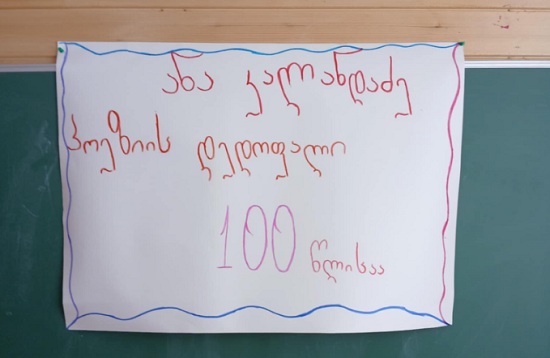 ანა კალანდაძე
პოეზიის დედოფალი
100 წლისაა